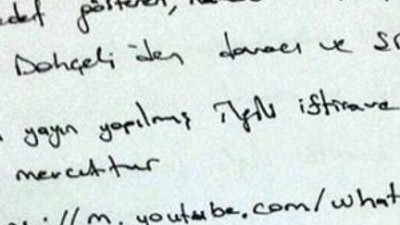 gösteren,
Bahçeli'den davacı ve
yayın yapılmış ilgili iftira ve
mevcuttur
://m.youtube.com/what